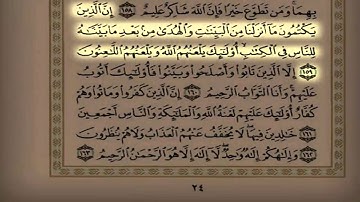 بِهِمَا وَمَن تَطَوَّعَ خَيْرًا فَإِنَّ ٱللَّهَ شَاكِرٌ عَلِيمٌ ١٥٨ إِنَّ ٱلَّذِينَ
يَكْتُمُونَ مَآ أَنزَلْنَا مِنَ ٱلْبَيِّنَٰتِ وَٱلْهُدَىٰ مِنۢ بَعْدِ مَا بَيَّنَّٰهُ
لِلنَّاسِ فِى ٱلْكِتَٰبِ أُو۟لَٰٓئِكَ يَلْعَنُهُمُ ٱللَّهُ وَيَلْعَنُهُمُ ٱللَّٰعِنُونَ
١٥٩ إِلَّا ٱلَّذِينَ تَابُوا۟ وَأَصْلَحُوا۟ وَبَيَّنُوا۟ فَأُو۟لَٰٓئِكَ أَتُوبُ
عَلَيْهِمْ وَأَنَا ٱلتَّوَّابُ ٱلرَّحِيمُ ١٦٠ إِنَّ ٱلَّذِينَ كَفَرُوا۟ وَمَاتُوا۟ وَهُمْ
كُفَّارٌ أُو۟لَٰٓئِكَ عَلَيْهِمْ لَعْنَةُ ٱللَّهِ وَٱلْمَلَٰٓئِكَةِ وَٱلنَّاسِ أَجْمَعِينَ
١٦١ خَٰلِدِينَ فِيهَا لَا يُخَفَّفُ عَنْهُمُ ٱلْعَذَابُ وَلَا هُمْ يُنظَرُونَ
١٦٢ وَإِلَٰهُكُمْ إِلَٰهٌ وَٰحِدٌ لَّآ إِلَٰهَ إِلَّا هُوَ ٱلرَّحْمَٰنُ ٱلرَّحِيمُ ١٦٣
٢٤